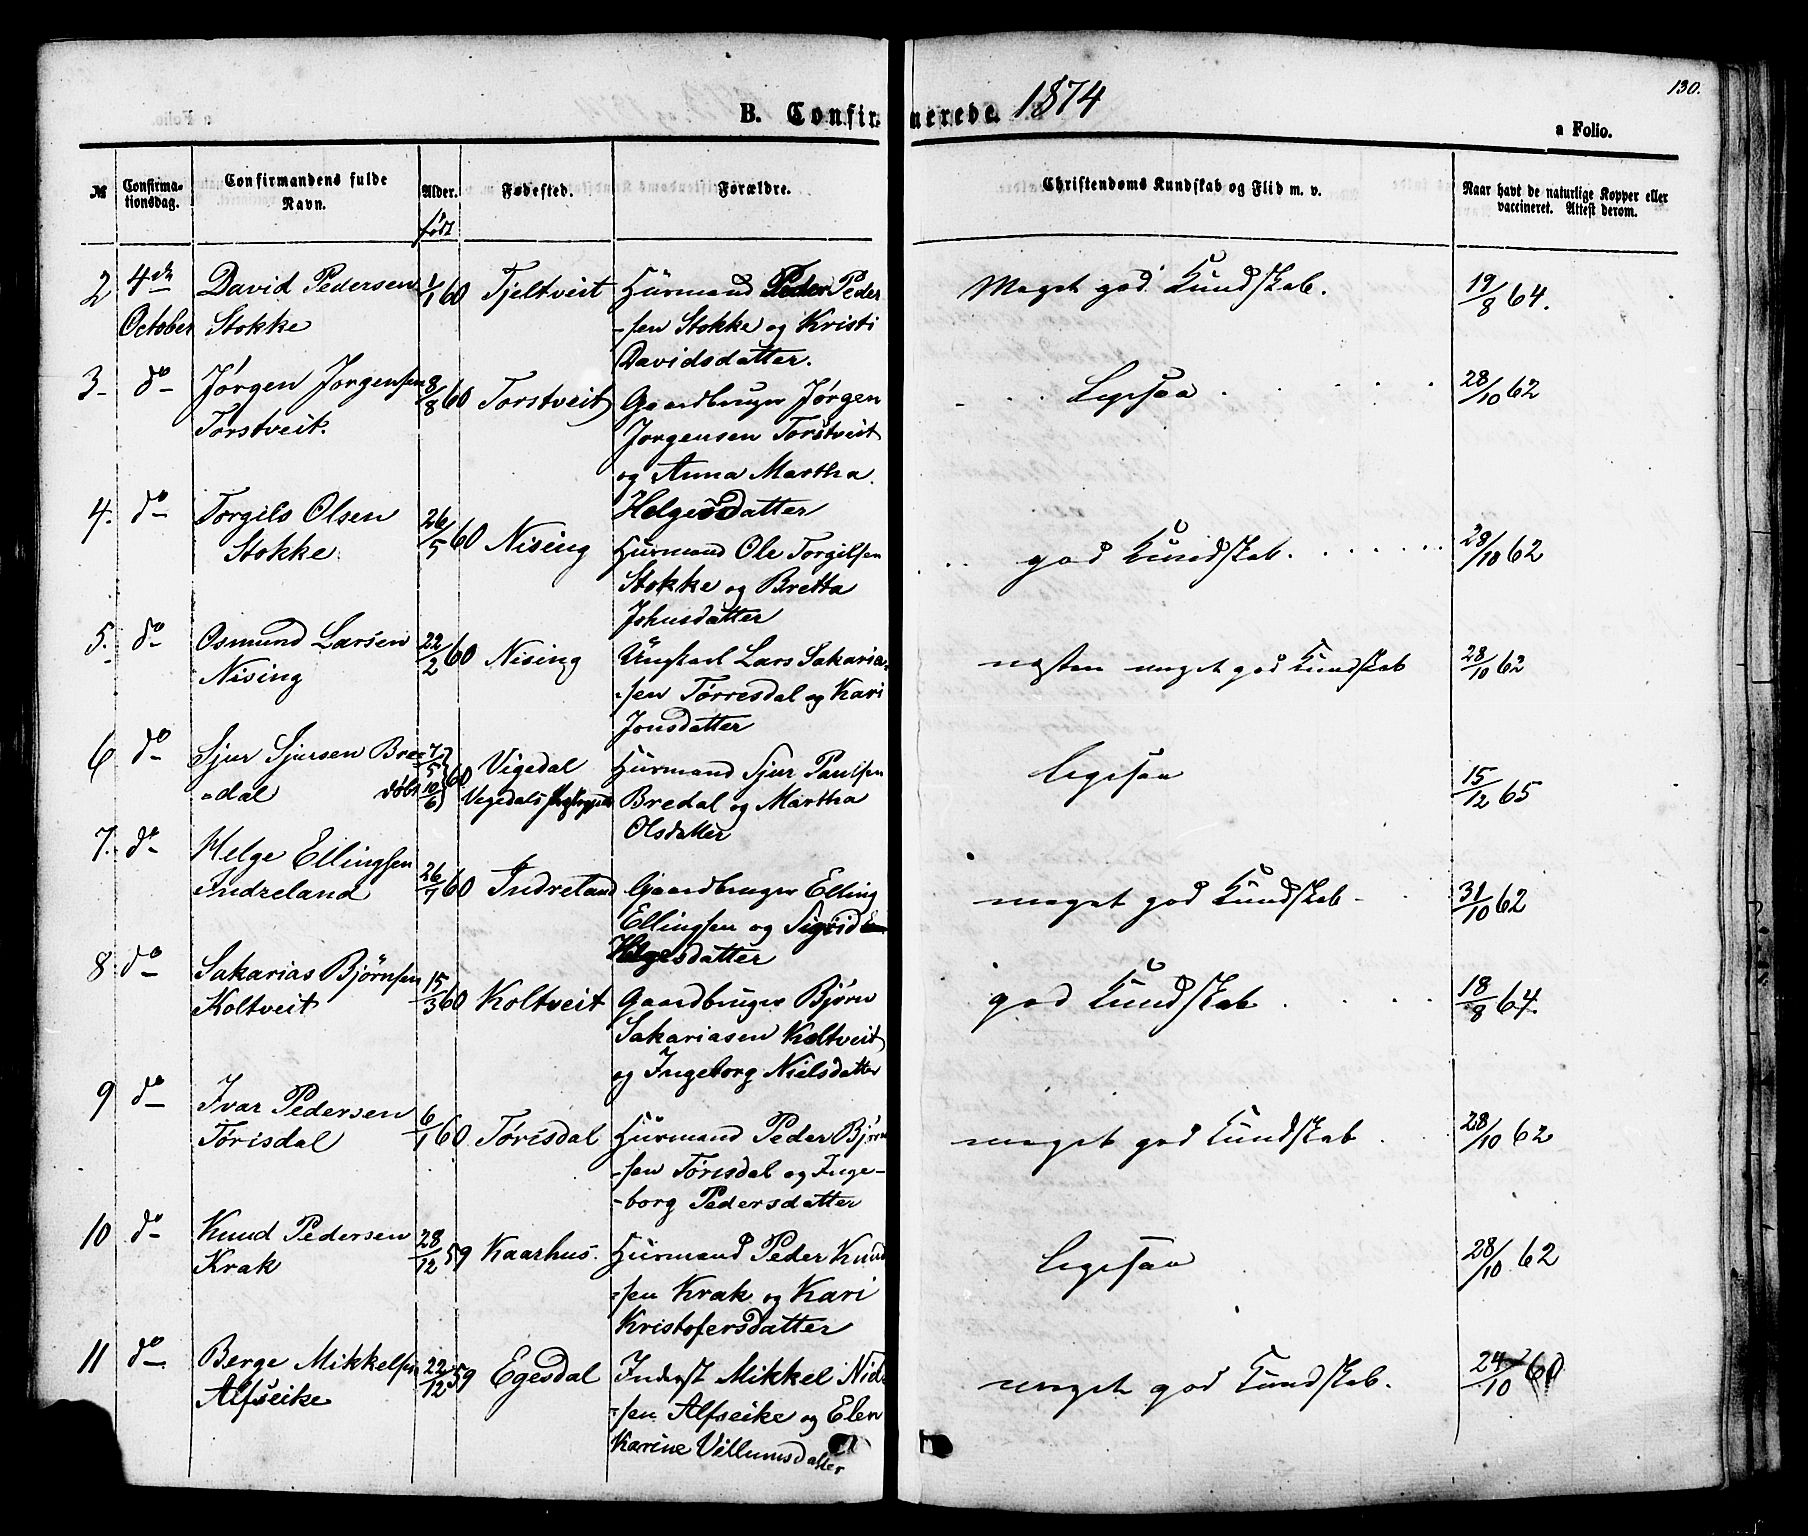 130.
B. Confirmerede. 1874
a Folio.
№ Confirma-tionsdag. Confirmandens fulde Navn. Alder. Fødested. Forældre. Christendoms Kundskab og Flid m. v. Naar havt de naturlige Kopper eller vaccineret. Attest derom.
født
2 4de David Pedersen 1/1 60 Tjeltveit Huusmand Peder Peder Meget god Kundskab. 19/8 64.
October Stokke -sen Stokke og Kristi
Davidsdatter.
3- do Jørgen Jørgensen 8/8 60 Torstveit Gaardbruger Jørgen Ligesaa 28/10 62
Torstveit. Jørgensen Torstveit
og Anna Martha
Helgesdatter
4. do Torgils Olsen 26/5 60 Nising Huusmand Ole Torgilsen god Kundskab. 28/10 62
Stokke Stokke og Bretta
Johnsdatter
5. do Osmund Larsen 22/2 60 Nising Ungkarl Lars Sakaria- næsten meget god Kundskab 28/10 62
Nising -sen Tørresdal og Kari
Jonsdatter
6 do Sjur Sjursen Bre- 7/5 60 Vigedal Huusmand Sjur Paulsen Ligesaa 15/12 65
-dal døbt 10/6 Vegedals Bredal og Martha
Olsdatter
7. do Helge Ellingsen 26/1 60 Indreland Gaardbruger Elling meget god Kundskab 31/10 62
Indreland Ellingsen og Sigrid
Helgesdatter
8 do Sakarias Bjørnsen 15/3 60 Koltveit Gaardbruger Bjørn god Kundskab 18/8 64.
Koltveit Sakariasen Koltveit
og Ingeborg Nielsdatter
9 do Ivar Pedersen 6/1 60 Tørisdal Huusmand Peder Bjørn meget god Kundskab 28/10 62
Tørisdal -sen Tørisdal og Inge-
-borg Pedersdatter
10 do Knud Pedersen 28/12 59 Kaarhus. Huusmand Peder Knud Ligesaa 28/10 62
Krak -sen Krak og Kari
Kristofersdatter
11 do Berge Mikkelsen 22/12 59 Egesdal Inderst Mikkel Niel meget god Kundskab. 24/10 60
Alfseike -sen Alfseike og Elen
Karine Villumsdatter